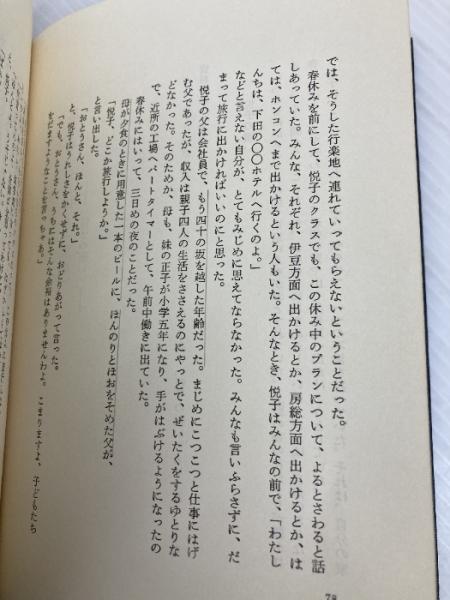 では、そうした行楽地へ連れていってもらえないということだった。
春休みを前にして、悦子のクラスでも、この休み中のプランについて、よるとさわると話
しあっていた。みんな、それぞれ、伊豆方面へ出かけるとか、房総方面へ出かけるとか、は
ては、ホンコンへまで出かけるという人もいた。そんなとき、悦子はみんなの前で、「わたし
んちは、下田の〇〇ホテルへ行くのよ。」
などと言えない自分が、とてもみじめに思えてならなかった。みんなも言いふらさずに、だ
まって旅行に出かければいいのにと思った。
悦子の父は会社員で、もう四十の坂を越した年齢だった。まじめにこつこつと仕事にはげ
む父であったが、収入は親子四人の生活をささえるのにやっとで、ぜいたくをするゆとりな
どなかった。そのためか、母も、妹の正子が小学五年になり、手がはぶけるようになったの
で、近所の工場へパートタイマーとして、午前中働きに出ていた。
春休みにはいって、三日めの夜のことだった。
母が夕食のときに用意した一本のビールに、ほんのりとほおをそめた父が、
「悦子、どこか旅行しようか。」
と言い出した。
「おとうさん、ほんと、それ。」
と、悦子はうれしさをかくせずに、おどりあがって言った。
「でも、おとうさん、うちにはそんな余裕はありませんわよ。こまりますよ、子どもたち
をだますようなことを言っちゃあ。」
78